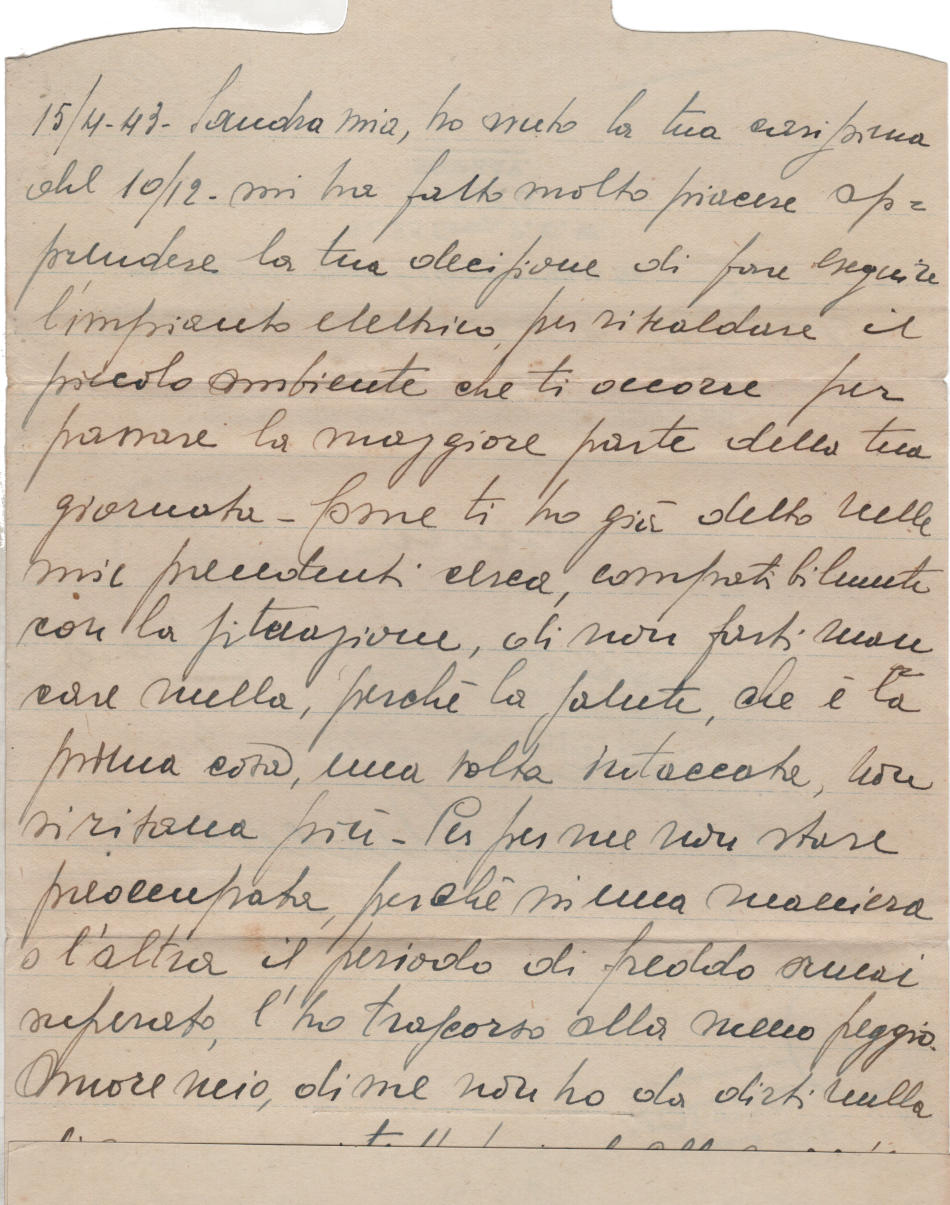 15/4-43- Sandra mia, ho avuto la tua carissima
del 10/12- mi ha fatto molto piacere ap=
prendere la tua decisione di fare eseguire
l'impianto elettrico, per riscaldare il
piccolo ambiente che ti occorre per
passare la maggiore parte della tua
giornata - Come ti ho già detto nelle
mie precedenti cerca, compatibilmente
con la situazione, di non farti man
care nulla, perchè la salute, che è la
prima cosa, una volta intaccata, non
si risana più - Per me non stare
preoccupata, perchè in una maniera
o l'altra il periodo di freddo ormai
superato, l'ho trascorso alla meno peggio.
Amore mio, di me non ho da dirti nulla